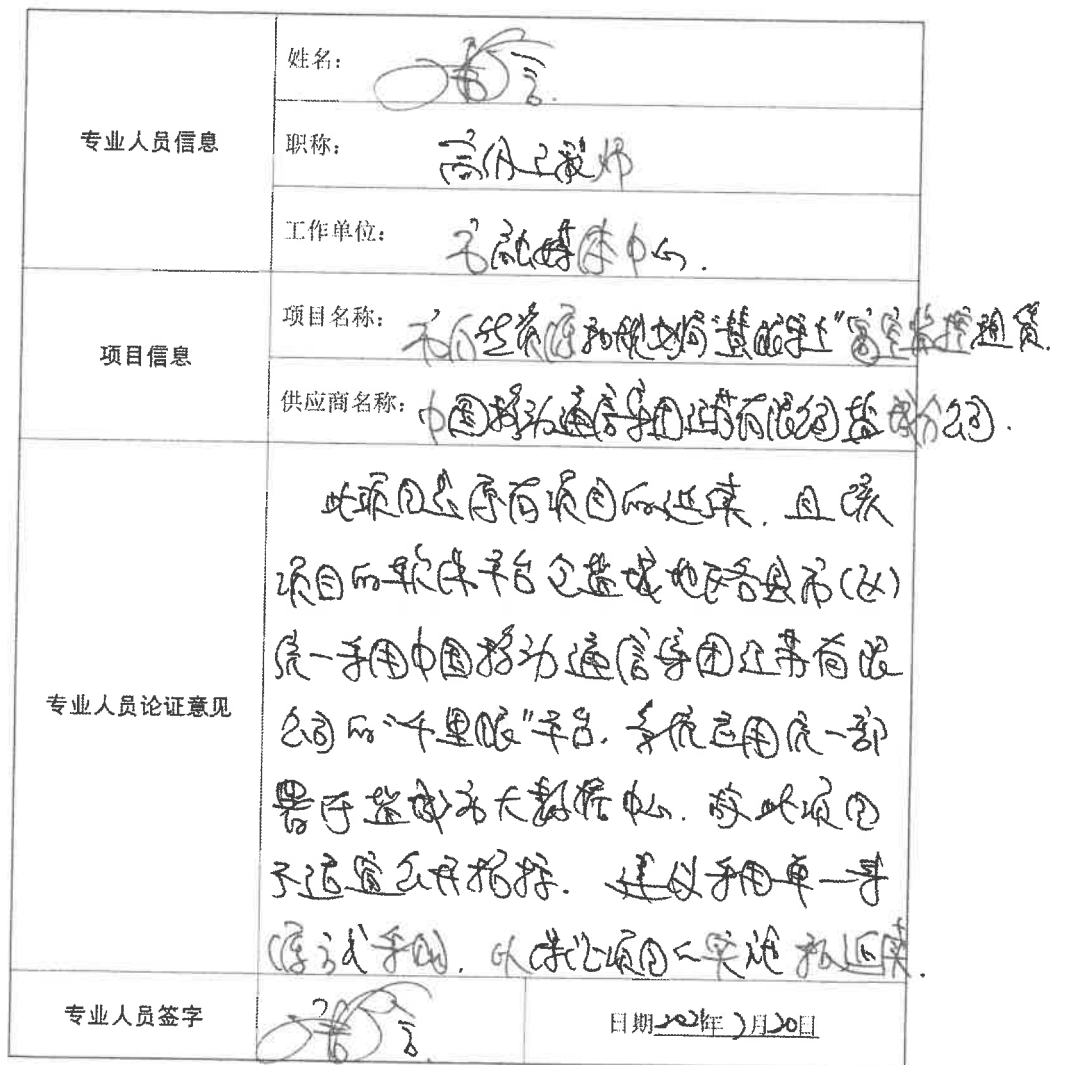 专业人员信息
姓名：
职称：高级工程师
工作单位：市融媒体中心.
项目信息
项目名称：市自然资源和规划局"慧眼守土"高空监控租赁.
供应商名称：中国移动通信集团江苏有限公司盐城分公司.
专业人员论证意见
此项目是原有项目的延续，且该
项目的软件平台全盐城地区各县市(区)
统一采用中国移动通信集团江苏有限
公司的"千里眼"平台，系统运用统一部
署于盐城市大数据中心，故此项目
不适宜公开招标. 建议采用单一来
源方式采购，以保证项目的实施和延续.
专业人员签字
日期 年 月20日